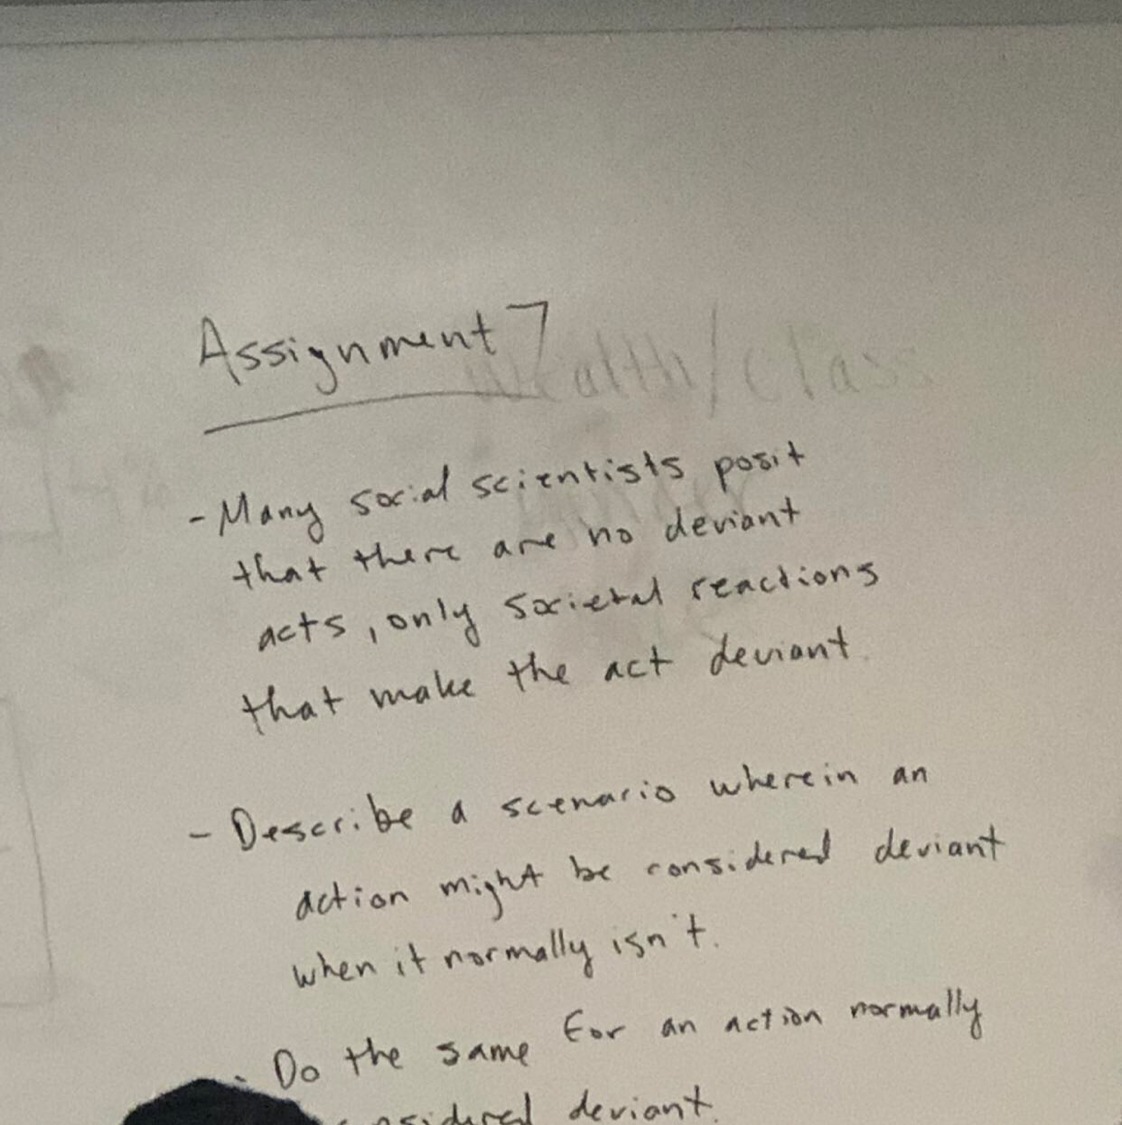 Assignment 7
Wealth/Class
- Many social scientists posit
that there are no deviant
acts, only societal reactions
that make the act deviant.
- Describe a scenario wherein an
action might be considered deviant
when it normally isn't.
- Do the same for an action normally
deviant.